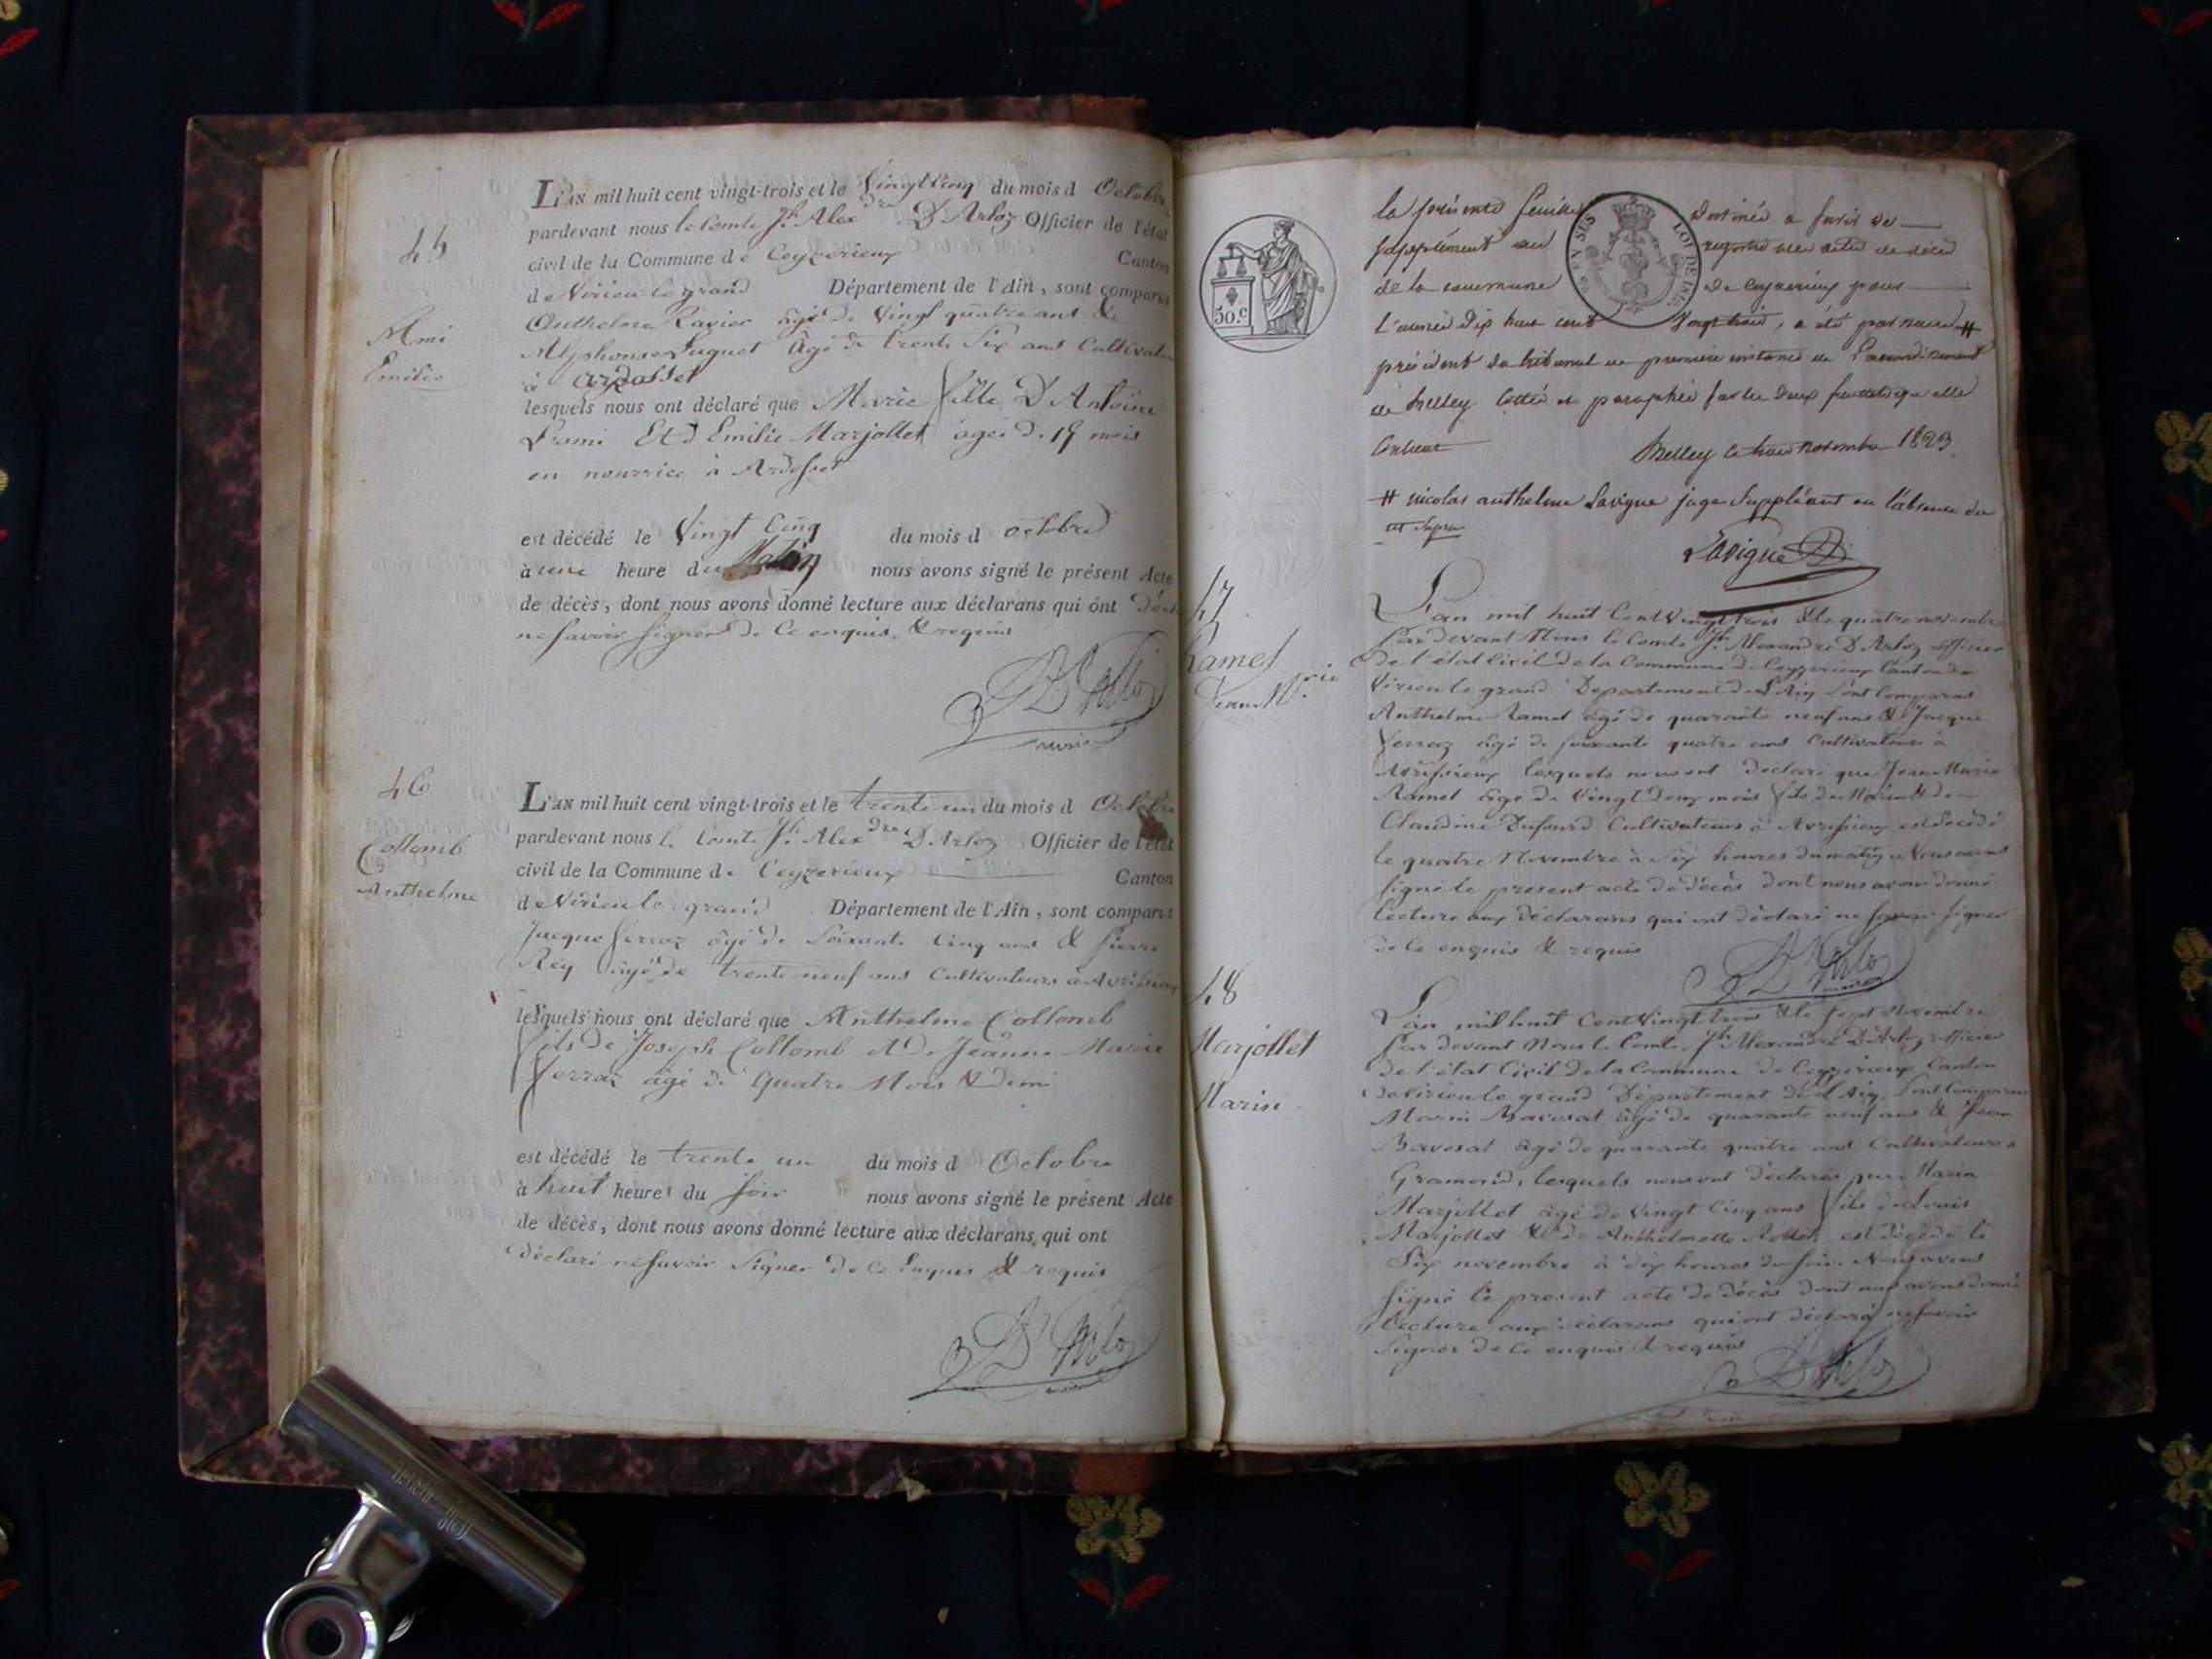 45
Emilie
L'AN mil huit cent vingt-trois et le Vingt Cinq du mois d Octobre
pardevant nous le Comte Jh. Alexdre D'Arloz Officier de l'état
civil de la Commune de Ceyzerieux Canton
de Virieu le grand Département de l'Ain, sont comparus
Anthelme Ravier âgé de Vingt quatre ans &
Alphonse Luquet âgé de trente Six ans Cultivateurs
à Ardosset
lesquels nous ont déclaré que Marie fille D'Antoine
Et d'Emilie Marjollet âgée de 19 mois
en nourrice à Ardosset
est décédé le Vingt Cinq du mois d octobre
à une heure du Matin nous avons signé le présent Acte
de décès, dont nous avons donné lecture aux déclarans qui ont
ne savoir signer de Ce enquis & requis
D'Arloz
46
Collomb
Anthelme
L'AN mil huit cent vingt-trois et le trente un du mois d Octobre
pardevant nous le Comte Jh. Alexdre D'Arloz Officier de l'état
civil de la Commune de Ceyzerieux Canton
de Virieu le grand Département de l'Ain, sont comparus
Jacque ferraz âgé de Soixante Cinq ans & pierre
Rey âgé de trente neuf ans Cultivateurs à Avrissieux
lesquels nous ont déclaré que Anthelme Collomb
fils de Joseph Collomb et de Jeanne Marie
ferraz âgé de Quatre Mois & demi
est décédé le trente un du mois d Octobre
à huit heures du soir nous avons signé le présent Acte
de décès, dont nous avons donné lecture aux déclarans, qui ont
déclaré ne savoir Signer de Ce Enquis & requis
D'Arloz
50.c
EN SUS
LOI DE 1816.
la présente feuille destinée a servir de
supplément au registre des actes de décès
de la commune de Ceyzerieux pour
l'année dix huit cent vingt trois, a été par nous #
président du tribunal de premiere instance de l'arrondissement
de Belley cotté et paraphé sur les deux feuillets qu'elle
contient
Belley le trois novembre 1823
# nicolas anthelme Lavigne juge Suppléant en l'absence du
ut supra
Lavigne
47
Ramel
Jean Mrie
L'an mil huit Cent Vingt trois & le quatre novembre
Pardevant Nous le Comte Jh. Alexandre D'Arloz officier
de l'état Civil de la Commune de Ceyzerieux Canton de
Virieu le grand Departement de l'Ain Sont Comparus
Anthelme Ramel âgé de quarante neuf ans & Jacque
ferraz âgé de soixante quatre ans Cultivateurs à
Avrissieux lesquels nous ont déclaré que Jean Marie
Ramel âgé de Vingt Deux mois fils de Marin & de
Claudine Dufourd Cultivateurs à Avrissieux est décédé
le quatre Novembre à Six heures du matin Nous avons
signé le present acte de décès dont nous avons donné
lecture aux déclarans qui ont déclaré ne savoir signer
de Ce enquis & requis
D'Arloz
48
Marjollet
Marin
L'an mil huit Cent Vingt trois & le sept Novembre
Par devant Nous le Comte Jh. Alexandre D'Arloz officier
de l'état Civil de la Commune de Ceyzerieux Canton
de Virieu le grand Département de l'Ain, Sont Comparus
Marin Bavosat âgé de quarante neuf ans & Jean
Bavosat âgé de quarante quatre ans Cultivateurs à
Gramond, lesquels nous ont déclarés que Marin
Marjollet âgé de Vingt Cinq ans fils de Louis
Marjollet & de Anthelmette Rollet est décédé le
Six novembre à dix heures du soir. Nous avons
signé le present acte de décès dont nous avons donné
lecture aux déclarans qui ont déclaré ne savoir
Signer de Ce enquis & requis
D'Arloz